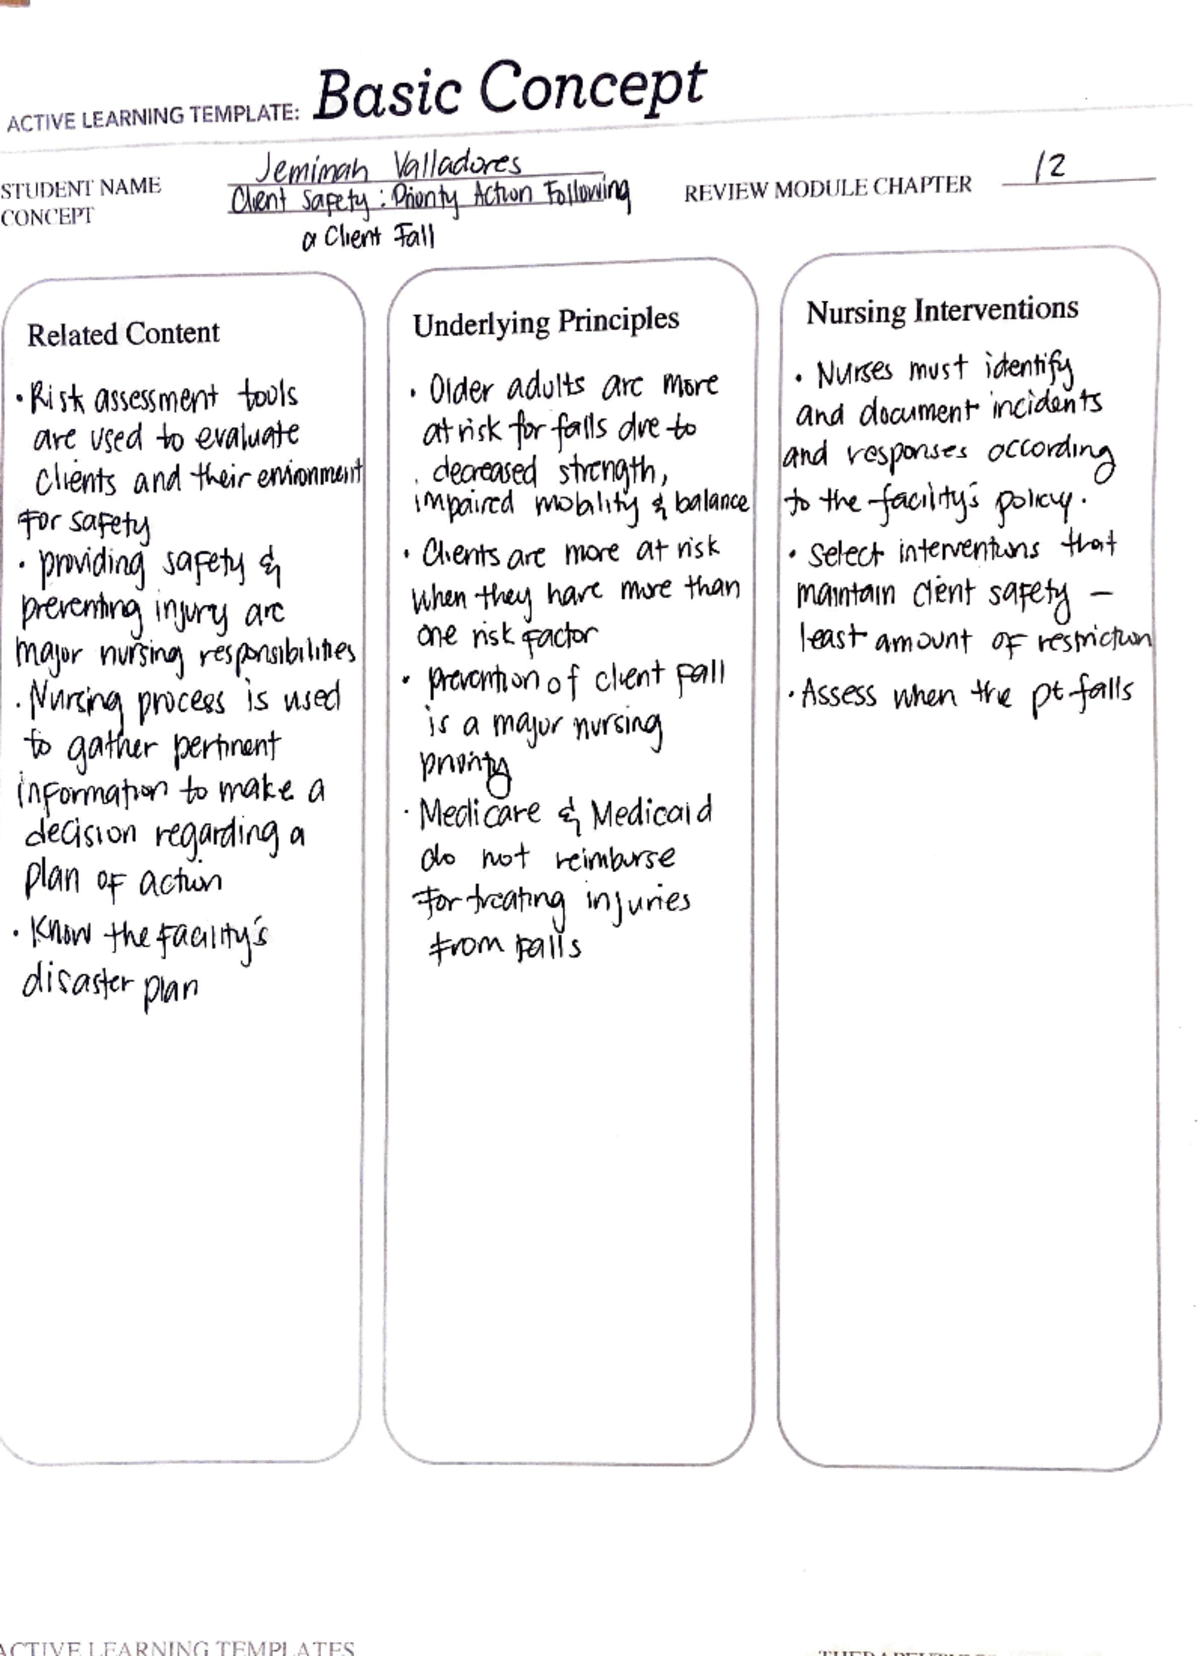 ACTIVE LEARNING TEMPLATE: Basic Concept
STUDENT NAME Jeminah Valladores
CONCEPT Client Safety: Priority Action Following
a Client Fall
REVIEW MODULE CHAPTER 12
Related Content
• Risk assessment tools
are used to evaluate
clients and their environment
for safety
• providing safety &
preventing injury are
major nursing responsibilities
• Nursing process is used
to gather pertinent
information to make a
decision regarding a
plan of action
• Know the facility's
disaster plan
Underlying Principles
• Older adults are more
at risk for falls due to
decreased strength,
impaired mobility & balance
• Clients are more at risk
when they have more than
one risk factor
• prevention of client fall
is a major nursing
priority
• Medicare & Medicaid
do not reimburse
for treating injuries
from falls
Nursing Interventions
• Nurses must identify
and document incidents
and responses according
to the facility's policy.
• select interventions that
maintain client safety –
least amount of restriction
• Assess when the pt falls
ACTIVE LEARNING TEMPLATES